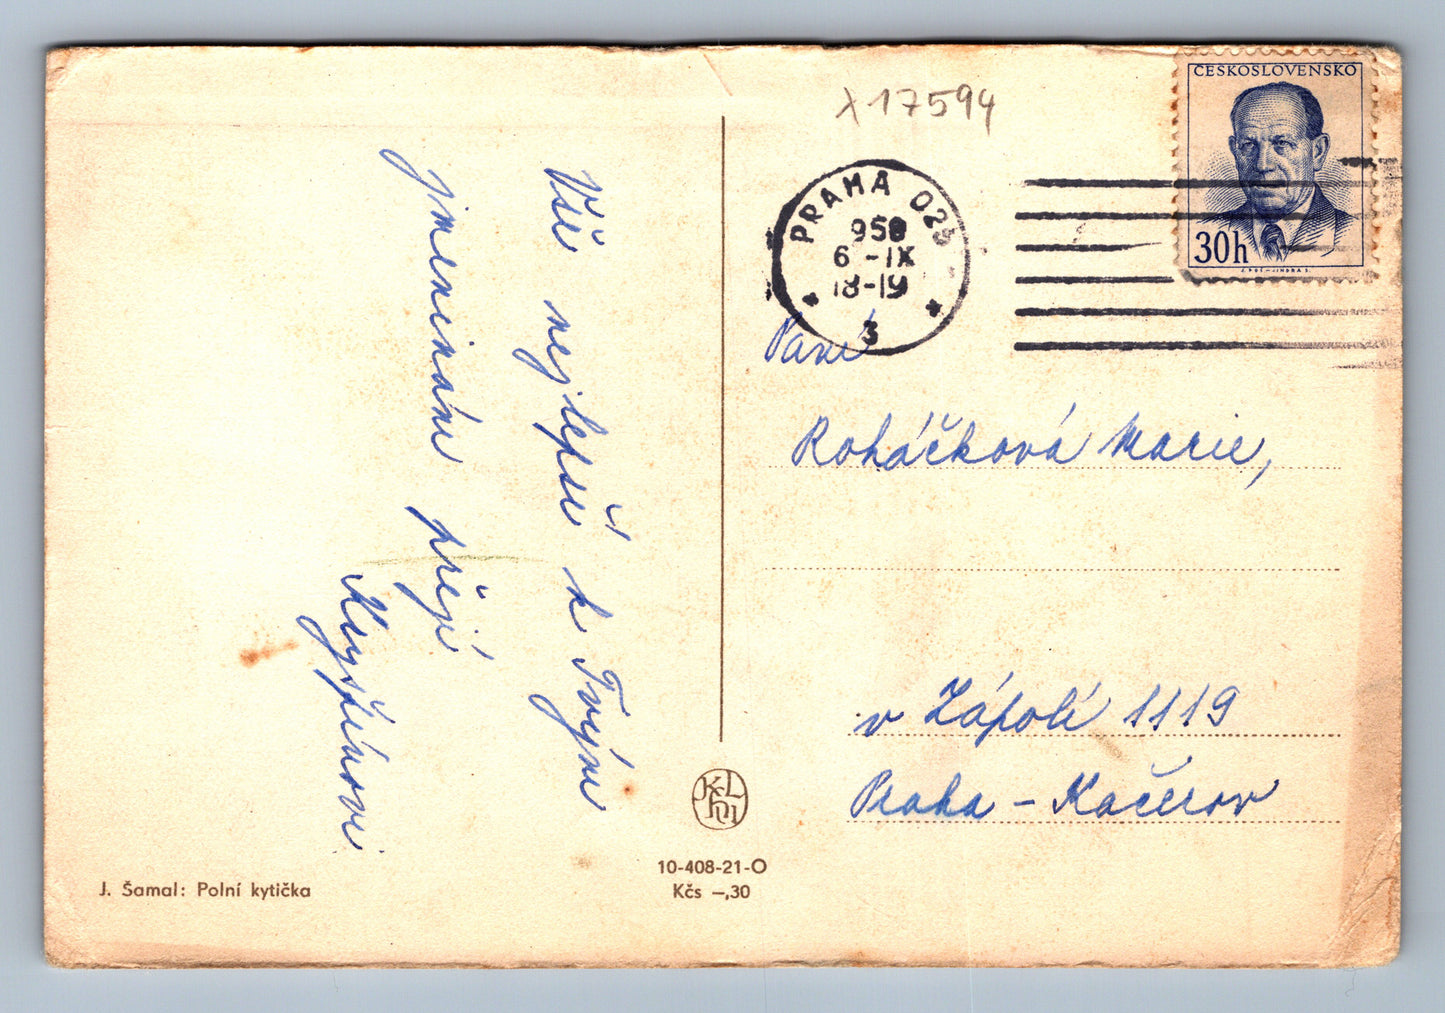 Vše nejlepší k Tvým
jmeninám
přejí
J. Šamal: Polní kytička
10-408-21-O
Kčs –,30
x 17594
ČESKOSLOVENSKO
30h
PRAHA 025
958
6 -IX
18-19
3
Paní
Roháčková Marie,
v Zápolí 1119
Praha - Kačerov